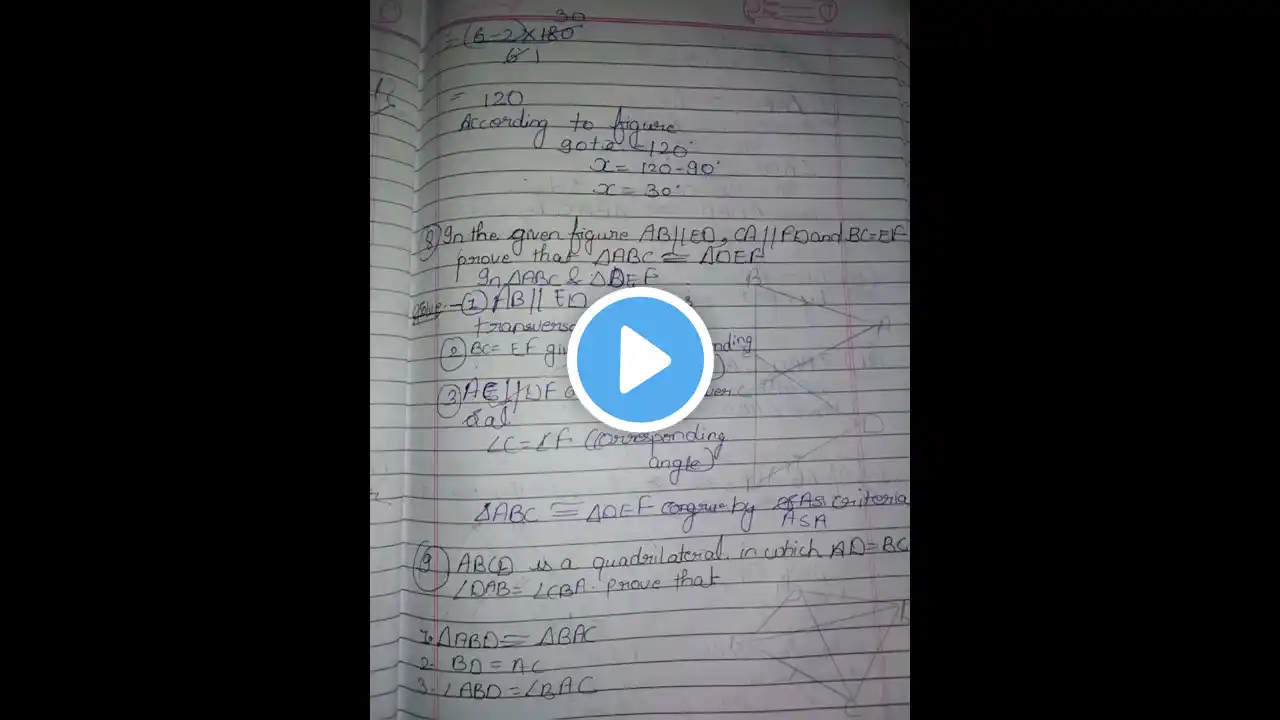 30
= (6-2)×180
6 1
= 120
According to figure
90+x=120°
x= 120-90°
x= 30°
8) In the given figure AB||ED, CA||FD and BC=EF
prove that △ABC ≅ △DEF
In △ABC & △DEF
Solve:- (1) AB||ED
B
A
(2) BC= EF
(3)
∠C=∠F (Corresponding
angle)
D
△ABC ≅ △DEF by criteria
ASA
9) ABCD is a quadrilateral in which AD=BC
∠DAB= ∠CBA. prove that
1. △ABD ≅ △BAC
2. BD = AC
3. ∠ABD =∠BAC